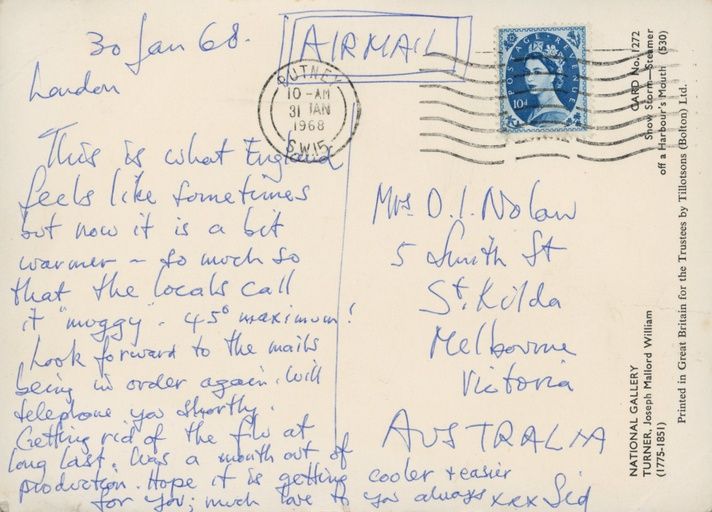 30 Jan 68.
London
AIRMAIL
PUTNEY
10-AM
31 JAN
1968
S.W.15
POSTAGE REVENUE
10d
This is what England
feels like sometimes
but now it is a bit
warmer – so much so
that the locals call
it "muggy". 45° maximum!
Look forward to the mails
being in order again. Will
telephone you shortly.
Getting rid of the flu at
long last. Was a month out of
production. Hope it is getting cooler + easier
for you; much love to you always xxx Sid
Mrs D. I. Nolan
5 Smith St
St. Kilda
Melbourne
Victoria
AUSTRALIA
CARD No. 1272
Snow Storm—Steamer
off a Harbour's Mouth (530)
NATIONAL GALLERY
TURNER, Joseph Mallord William
(1775-1851)
Printed in Great Britain for the Trustees by Tillotsons (Bolton) Ltd.